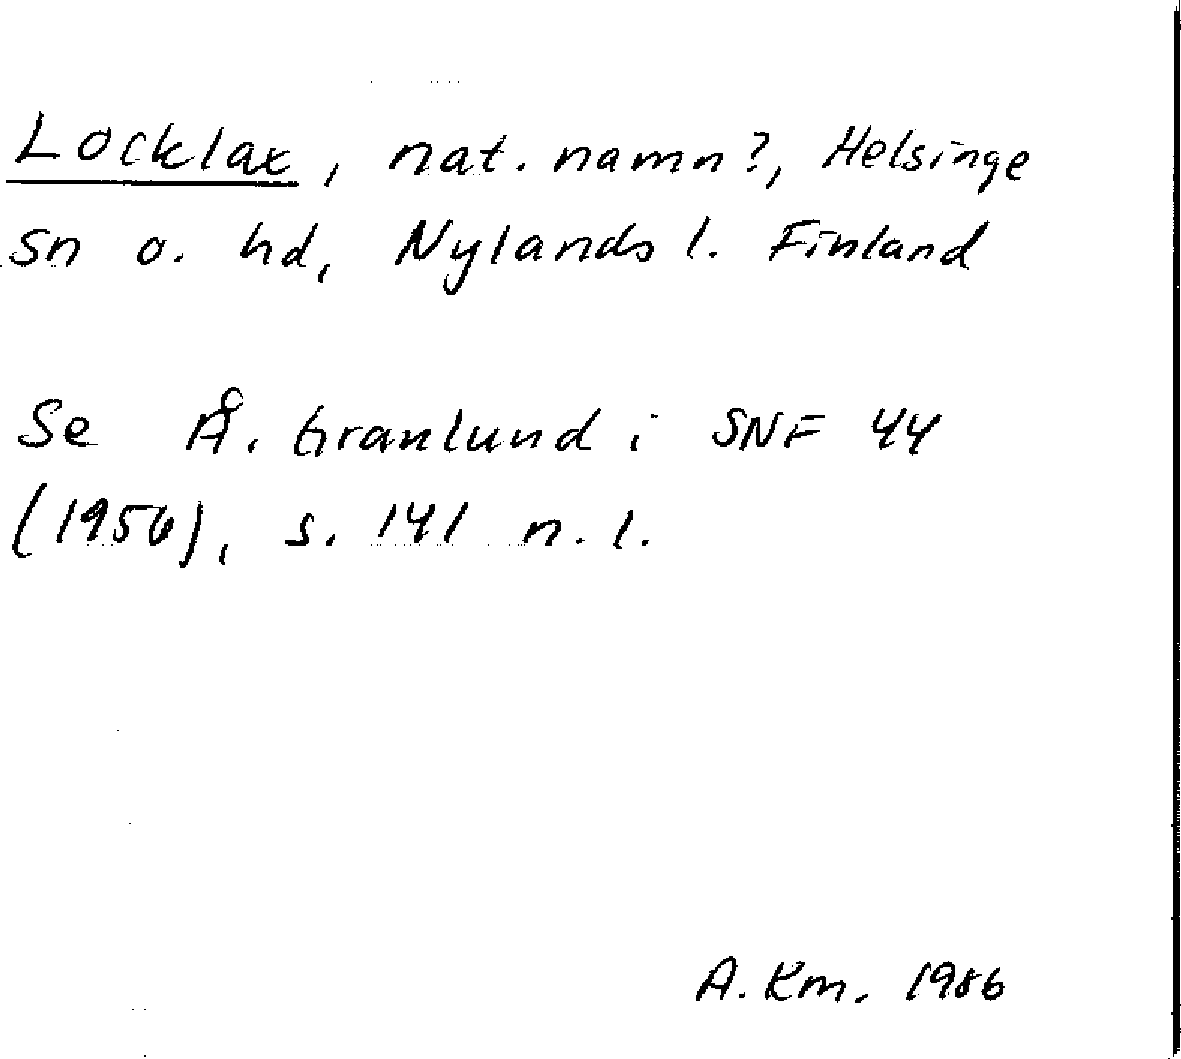 Locklax, nat. namn?, Helsinge
sn o. hd, Nylands l. Finland
Se Å. Granlund i SNF 44
(1956), s. 141 n. l.
A. Km. 1986